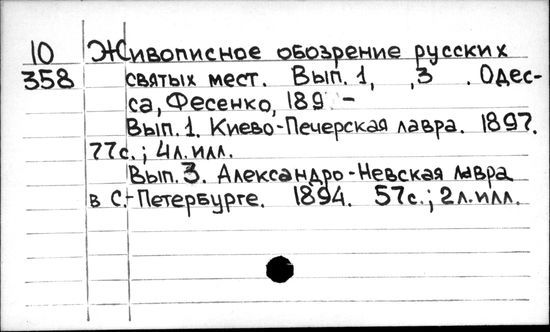 10 Живописное обозрение русских
358 святых мест. Вып. 1, ,3 . Одес-
са, Фесенко, 189 -
Вып. 1. Киево-Печерская лавра. 1897.
77с.; 4л.илл.
Вып. 3. Александро-Невская лавра
в С.-Петербурге. 1894. 57с.; 2л.илл.